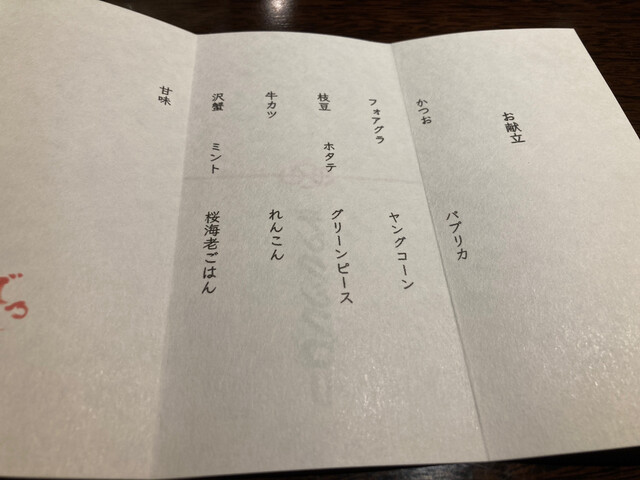 お献立
かつお　パプリカ
フォアグラ　ヤングコーン
枝豆　ホタテ　グリーンピース
牛カツ　れんこん
沢蟹　ミント　桜海老ごはん
甘味